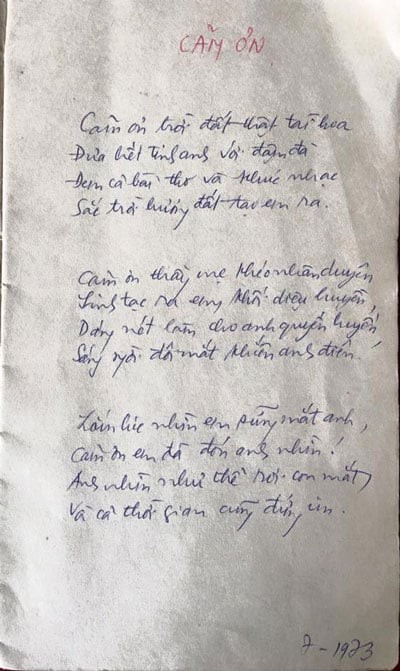 CẢM ƠN
Cảm ơn trời đất thật tài hoa
Đưa hết tinh anh với đậm đà
Đem cả bài thơ và khúc nhạc
Sắc trời hương đất tạo em ra.
Cảm ơn thầy mẹ khéo nhân duyên
Sinh tạc ra em, khối diệu huyền,
Dáng nét làm cho anh quyến luyến,
Sáng ngời đôi mắt khiến anh điên.
Lắm lúc nhìn em rưng mắt anh,
Cảm ơn em đã đón anh nhìn!
Anh nhìn như thể rơi con mắt,
Và cả thời gian cũng đứng im.
7 - 1973